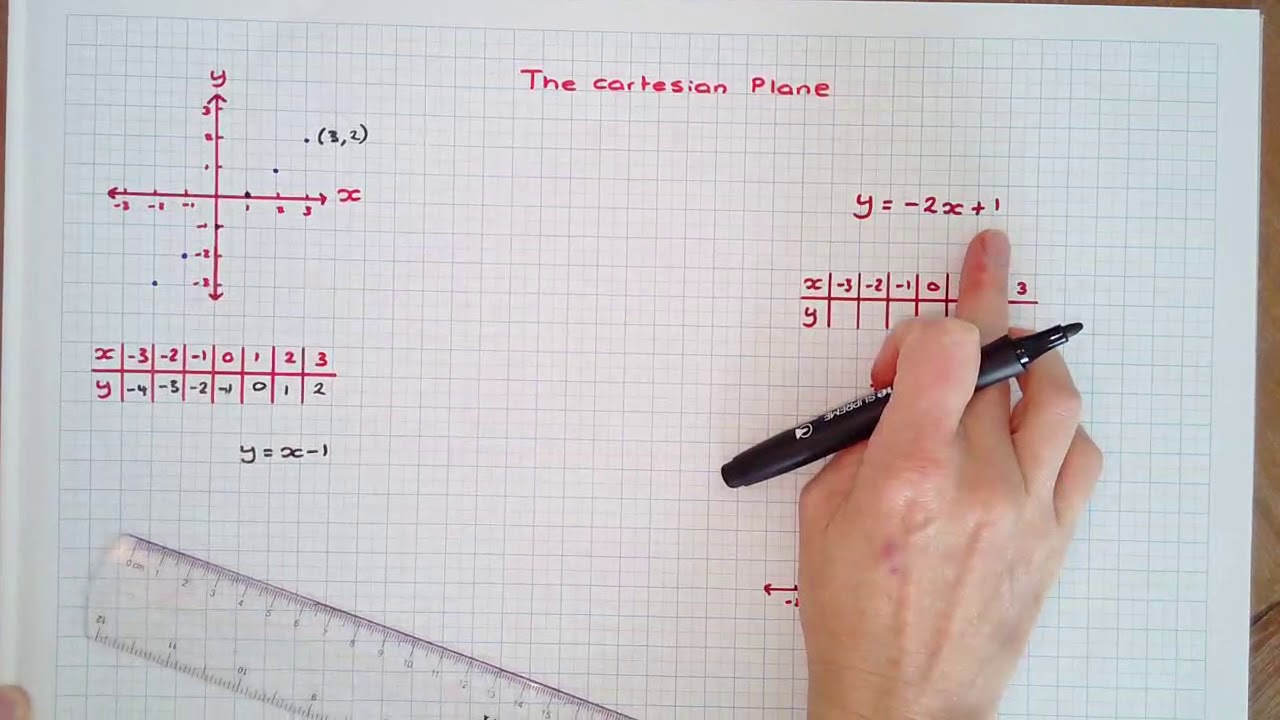 The cartesian Plane
y
3
2
1
(3,2)
-3 -2 -1 1 2 3 x
-1
-2
-3
x -3 -2 -1 0 1 2 3
y -4 -3 -2 -1 0 1 2
y = x-1
y = -2x+1
x -3 -2 -1 0 3
y
SUPREME
0 cm 1 2 3 4 5 6 7 8 9 10 11 12 13 14 15
12 11 10 9